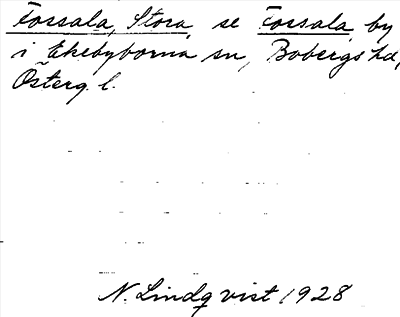 Fossala, Stora, se Fossala, by
i Ekebyborna sn, Bobergs hd,
Österg. l.
N. Lindqvist 1928